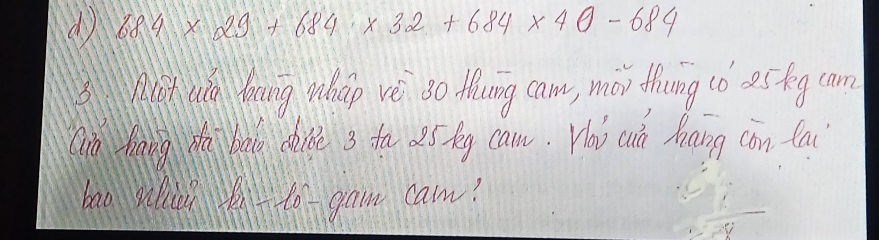 d) 684 x 29 + 684 x 32 + 684 x 40 - 684
3. Một cửa hàng nhập về 30 thùng cam, mỗi thùng có 25 kg cam
Cửa hàng đã bán được 3 tạ 25 kg cam. Hỏi cửa hàng còn lại
bao nhiêu ki-lô-gam cam?